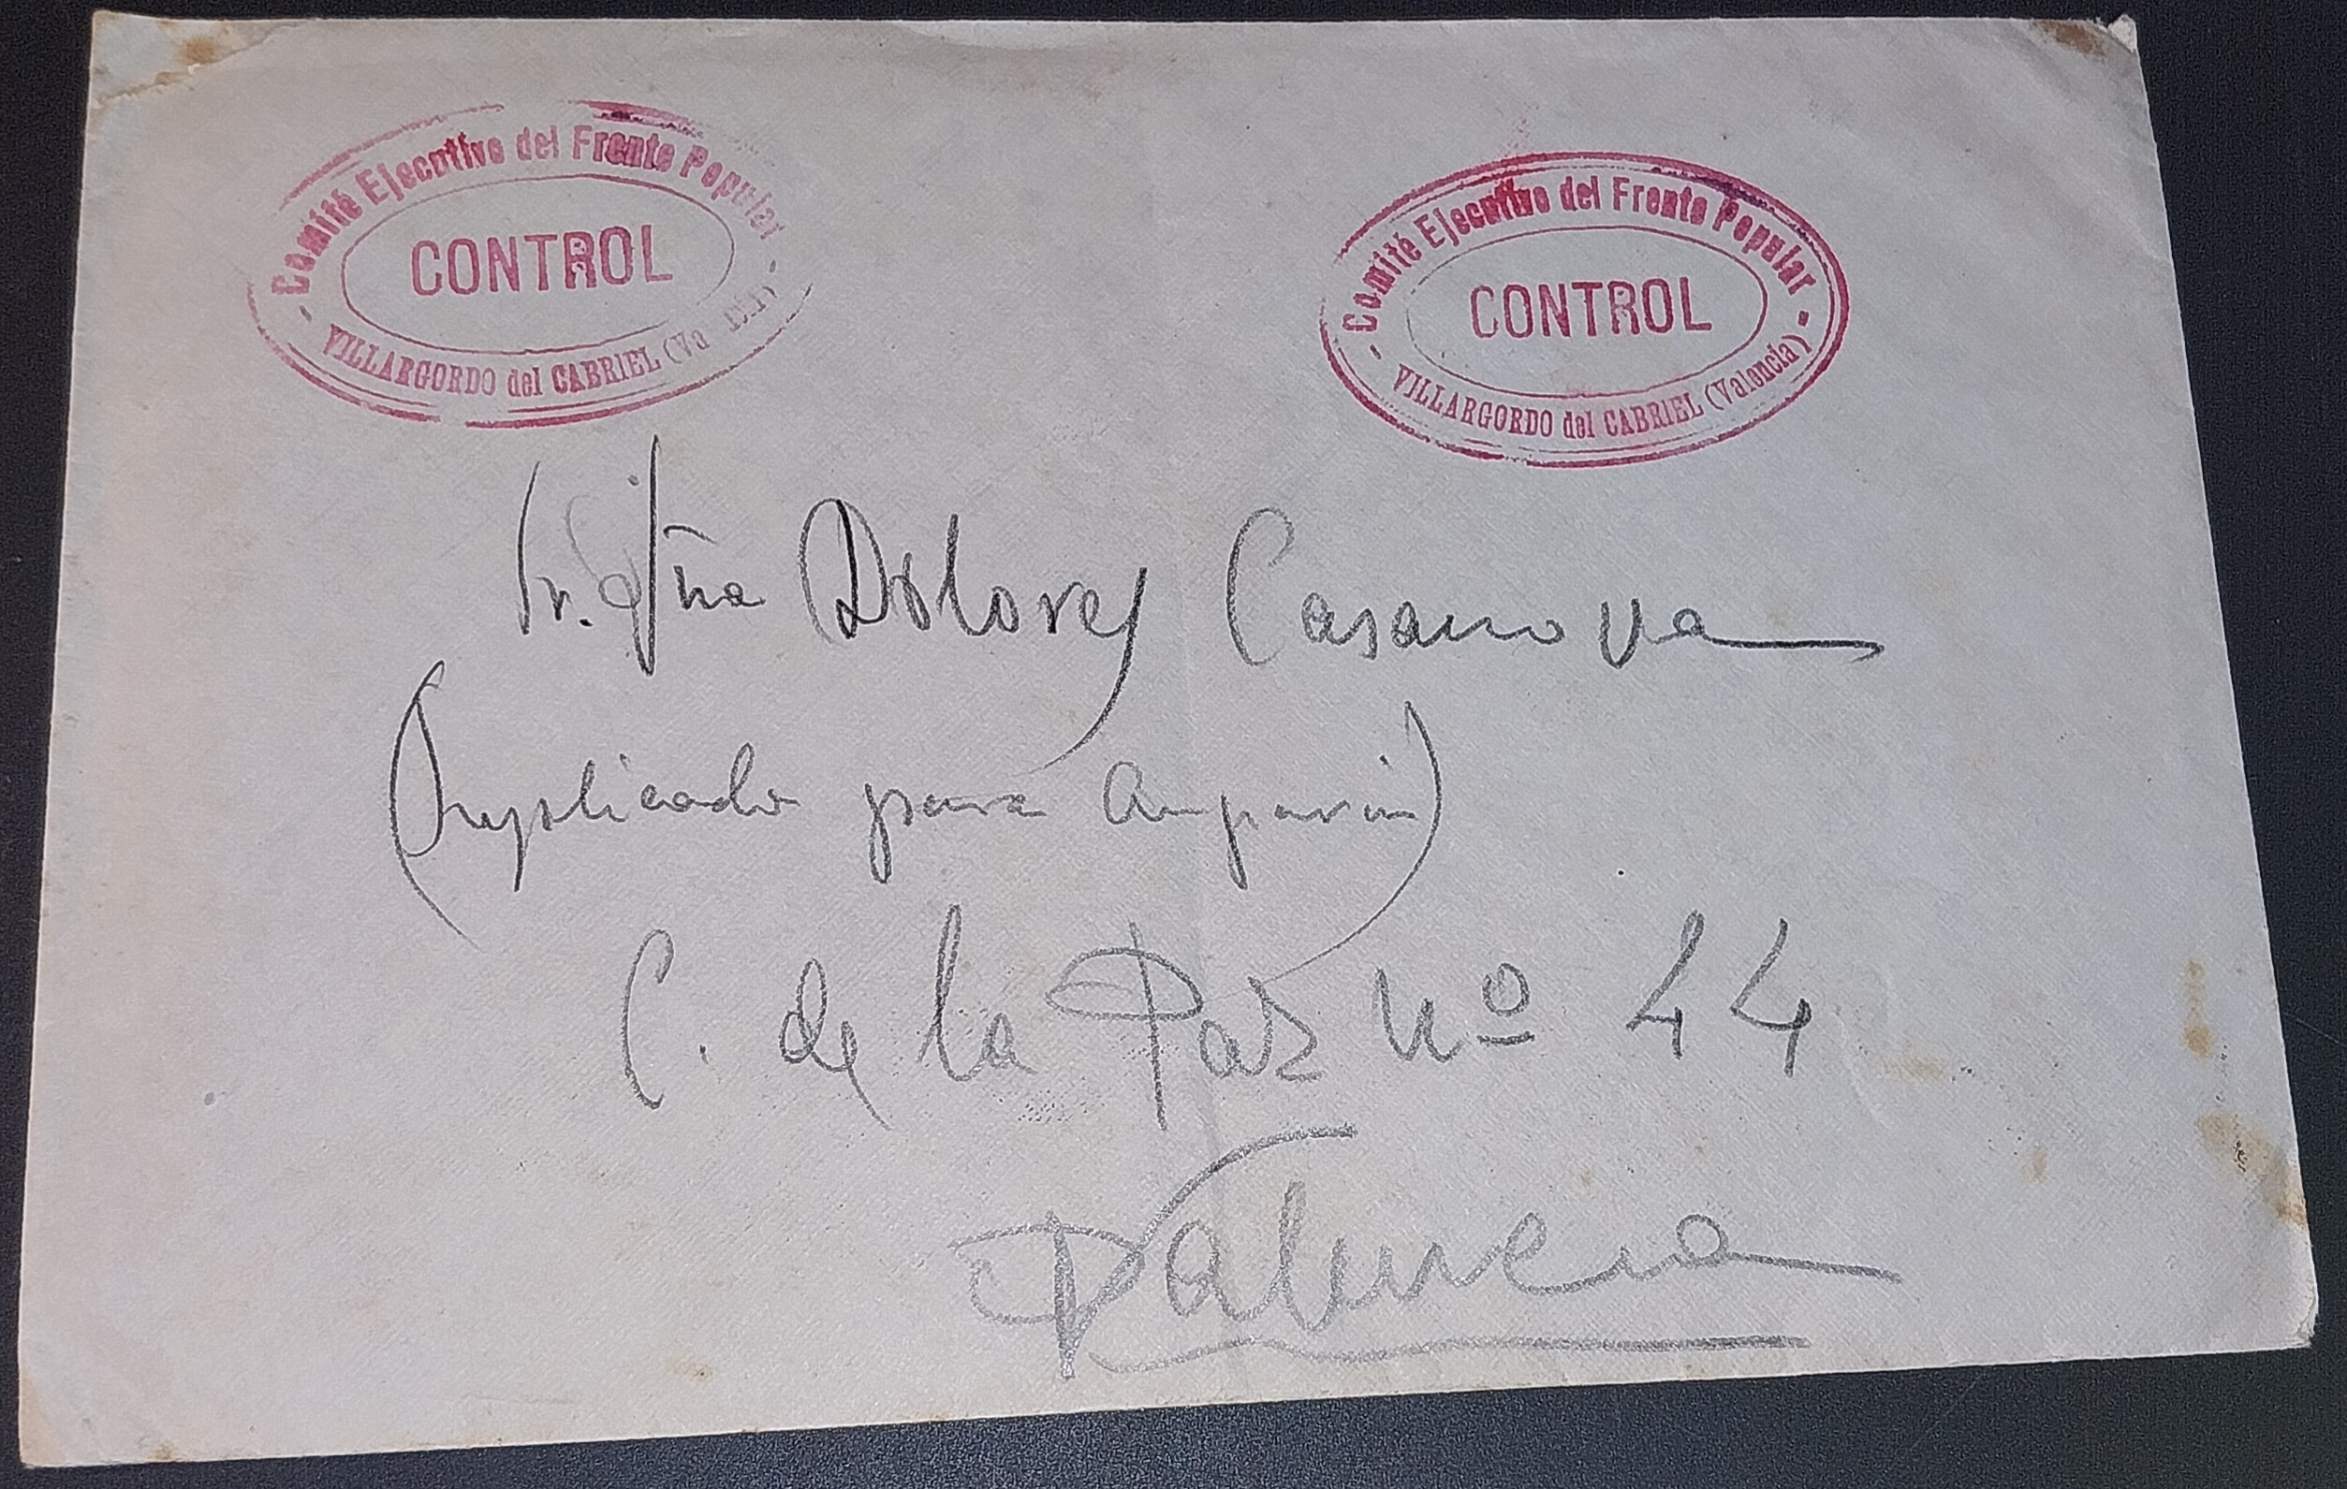 Comité Ejecutivo del Frente Popular
CONTROL
- VILLARGORDO del CABRIEL (Va ncia) -
Comité Ejecutivo del Frente Popular
CONTROL
- VILLARGORDO del CABRIEL (Valencia) -
Dolores Casanova
(Suplicada para Amparin)
C. de la Paz Nº 44
Valencia